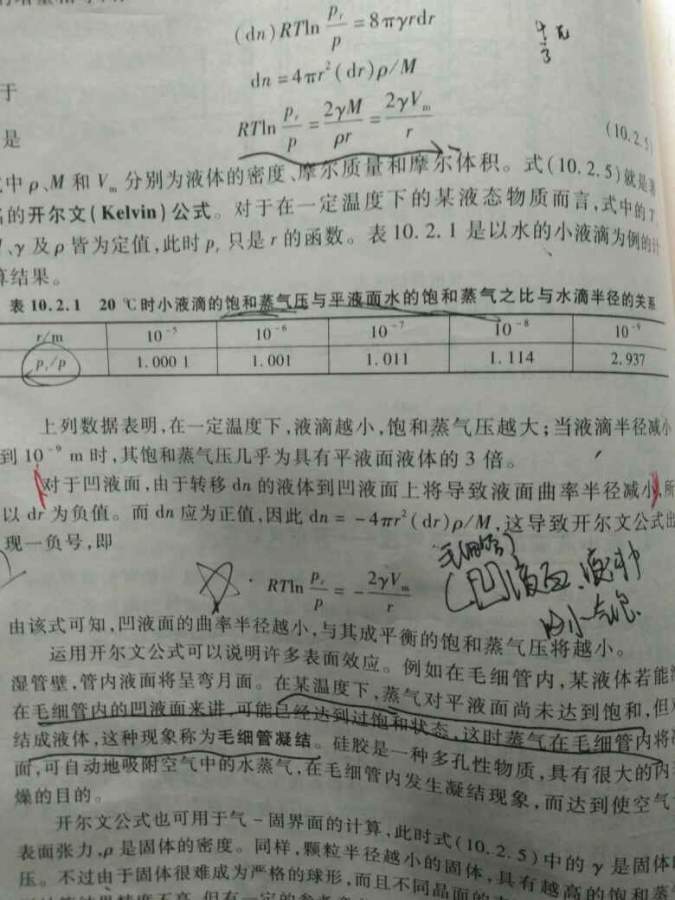 (dn)RTln p_r/p = 8πγrdr
dn = 4πr²(dr)ρ/M
于
RTln p_r/p = 2γM/ρr = 2γV_m/r
(10.2.5)
是
中 ρ、M 和 V_m 分别为液体的密度、摩尔质量和摩尔体积。式(10.2.5)就是著
名的开尔文(Kelvin)公式。对于在一定温度下的某液态物质而言,式中的 T
、γ 及 ρ 皆为定值,此时 p_r 只是 r 的函数。表 10.2.1 是以水的小液滴为例的计
算结果。
表 10.2.1 20 ℃时小液滴的饱和蒸气压与平液面水的饱和蒸气之比与水滴半径的关系
r/m 10⁻⁵ 10⁻⁶ 10⁻⁷ 10⁻⁸ 10⁻⁹
p_r/p 1.000 1 1.001 1.011 1.114 2.937
上列数据表明,在一定温度下,液滴越小,饱和蒸气压越大;当液滴半径减小
到 10⁻⁹ m 时,其饱和蒸气压几乎为具有平液面液体的 3 倍。
对于凹液面,由于转移 dn 的液体到凹液面上将导致液面曲率半径减小,所
以 dr 为负值。而 dn 应为正值,因此 dn = -4πr²(dr)ρ/M,这导致开尔文公式出
现一负号,即
毛细管
凹液面、液体
RTln p_r/p = - 2γV_m/r
小气泡
由该式可知,凹液面的曲率半径越小,与其成平衡的饱和蒸气压将越小。
运用开尔文公式可以说明许多表面效应。例如在毛细管内,某液体若能
湿管壁,管内液面将呈弯月面。在某温度下,蒸气对平液面尚未达到饱和,但
在毛细管内的凹液面来讲,可能已经达到过饱和状态,这时蒸气在毛细管内将
结成液体,这种现象称为毛细管凝结。硅胶是一种多孔性物质,具有很大的内
面,可自动地吸附空气中的水蒸气,在毛细管内发生凝结现象,而达到使空气
燥的目的。
开尔文公式也可用于气-固界面的计算,此时式(10.2.5)中的 γ 是固体
表面张力,ρ 是固体的密度。同样,颗粒半径越小的固体,具有越高的饱和蒸
压。不过由于固体很难成为严格的球形,而且不同晶面的